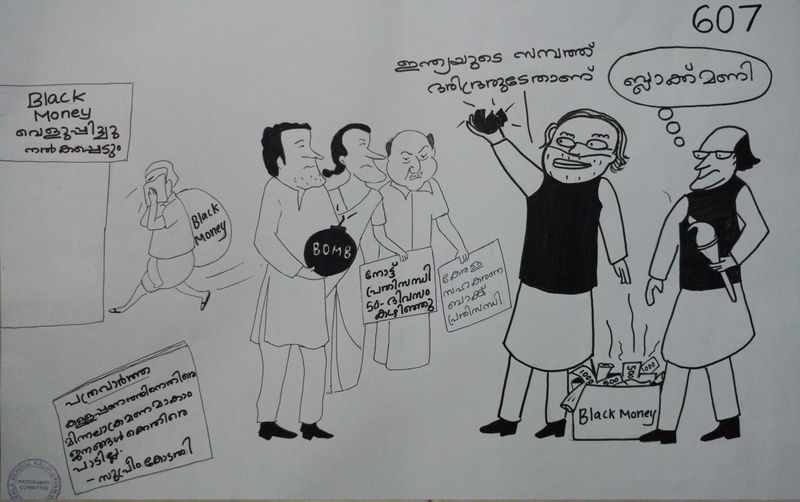 607
ഇന്ത്യയുടെ സമ്പത്ത്
ദരിദ്രരുടേതാണ്
ബ്ലാക്ക് മണി
Black
Money
വെളുപ്പിച്ചു
നൽകപ്പെടും
Black
Money
BOMB
നോട്ട്
പ്രതിസന്ധി
50-ദിവസം
കഴിഞ്ഞു
കേരള
സഹകരണ
ബാങ്ക്
പ്രതിസന്ധി
1000
500
1000
Black Money
പത്രവാർത്ത
കള്ളപ്പണത്തിനെതിരെ
മിന്നലാക്രമണമാകാം
ജനങ്ങൾക്കെതിരെ
പാടില്ല.
- സുപ്രീം കോടതി
PROGRAMME
COMMITTEE